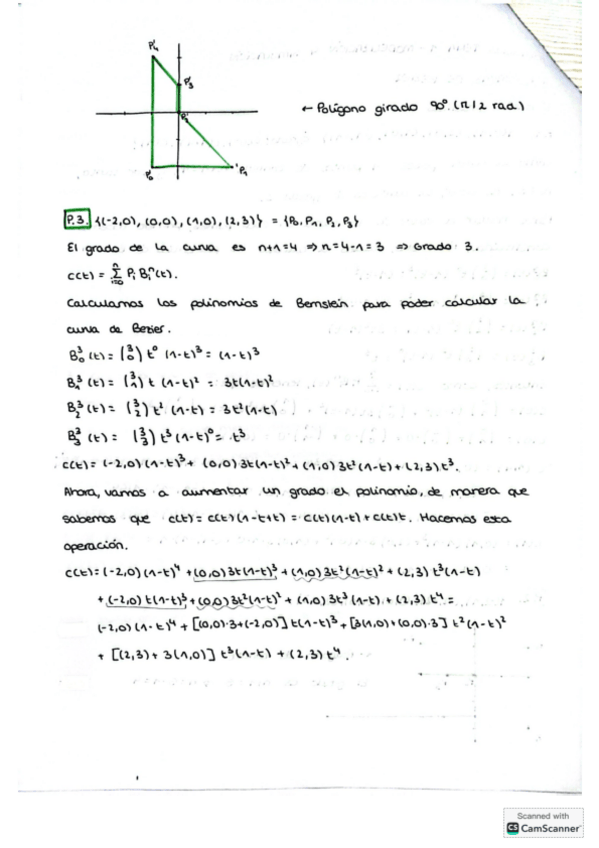 P'4
P'3
P'2
P'0
P'1
← Polígono girado 90º. (π/2 rad)
P.3. {(-2,0), (0,0), (1,0), (2,3)} = {P0, P1, P2, P3}
El grado de la curva es n+1=4 ⇒ n=4-1=3 ⇒ Grado 3.
c(t) = Σ(i=0, n) Pi Bi^n(t).
Calculamos los polinomios de Bernstein para poder calcular la
curva de Bezier.
B0^3(t) = (3 0) t^0 (1-t)^3 = (1-t)^3
B1^3(t) = (3 1) t (1-t)^2 = 3t(1-t)^2
B2^3(t) = (3 2) t^2 (1-t) = 3t^2(1-t)
B3^3(t) = (3 3) t^3 (1-t)^0 = t^3
c(t) = (-2,0)(1-t)^3 + (0,0) 3t(1-t)^2 + (1,0) 3t^2(1-t) + (2,3) t^3.
Ahora, vamos a aumentar un grado el polinomio, de manera que
sabemos que c(t) = c(t)(1-t+t) = c(t)(1-t) + c(t)t. Hacemos esta
operación.
c(t) = (-2,0)(1-t)^4 + (0,0) 3t(1-t)^3 + (1,0) 3t^2(1-t)^2 + (2,3) t^3(1-t)
+ (-2,0) t(1-t)^3 + (0,0) 3t^2(1-t)^2 + (1,0) 3t^3(1-t) + (2,3) t^4 =
(-2,0)(1-t)^4 + [(0,0)·3+(-2,0)] t(1-t)^3 + [3(1,0)+(0,0)·3] t^2(1-t)^2
+ [(2,3) + 3(1,0)] t^3(1-t) + (2,3) t^4.
Scanned with
CS CamScanner